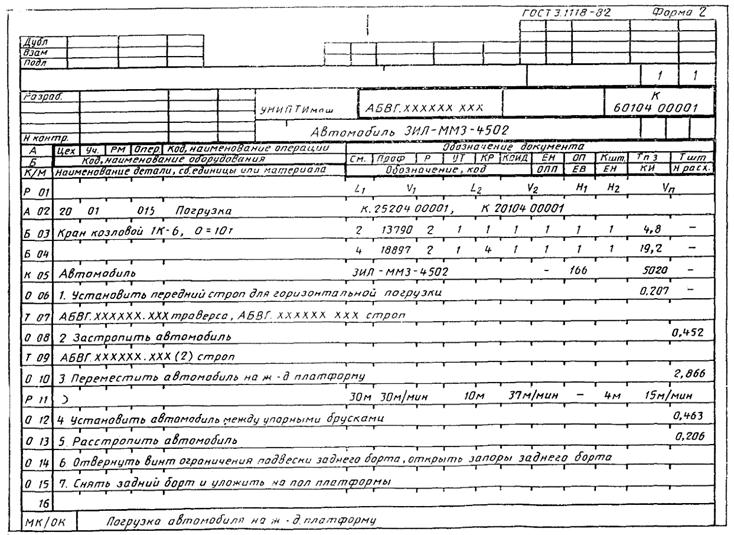 ГОСТ 3.1118-82 Форма 2
Дубл
Взам
Подл
1 1
Разраб.
УНИПТИмаш АБВГ.ХХХХХХ ХХХ К
60104 00001
Автомобиль ЗИЛ-ММЗ-4502
Н контр.
А Цех Уч. РМ Опер Код, наименование операции Обозначение документа
Б Код, наименование оборудования См. Проф Р УТ КР КОИД ЕН ОП Кшт. Тпз Тшт
К/М Наименование детали, сб.единицы или материала Обозначение, код ОПП ЕВ ЕН КИ Н расх.
Р 01 L1 V1 L2 V2 H1 H2 Vп
А 02 20 01 015 Погрузка К.25204 00001, К 20104 00001
Б 03 Кран козловой 1К-6, Q=10т 2 13790 2 1 1 1 1 1 1 4,8 –
Б 04 4 18897 2 1 4 1 1 1 1 19,2 –
К 05 Автомобиль ЗИЛ-ММЗ-4502 – 166 5020 –
О 06 1. Установить передний строп для горизонтальной погрузки 0.207 –
Т 07 АБВГ.ХХХХХХ.ХХХ траверса, АБВГ.ХХХХХХ ХХХ строп
О 08 2 Застропить автомобиль 0,452
Т 09 АБВГ.ХХХХХХ.ХХХ (2) строп
О 10 3 Переместить автомобиль на ж-д платформу 2,866
Р 11 30м 30м/мин 10м 37м/мин – 4м 15м/мин
О 12 4 Установить автомобиль между упорными брусками 0,463
О 13 5. Расстропить автомобиль 0,206
О 14 6 Отвернуть винт ограничения подвески заднего борта, открыть запоры заднего борта
О 15 7. Снять задний борт и уложить на пол платформы
16
МК/ОК Погрузка автомобиля на ж-д.платформу